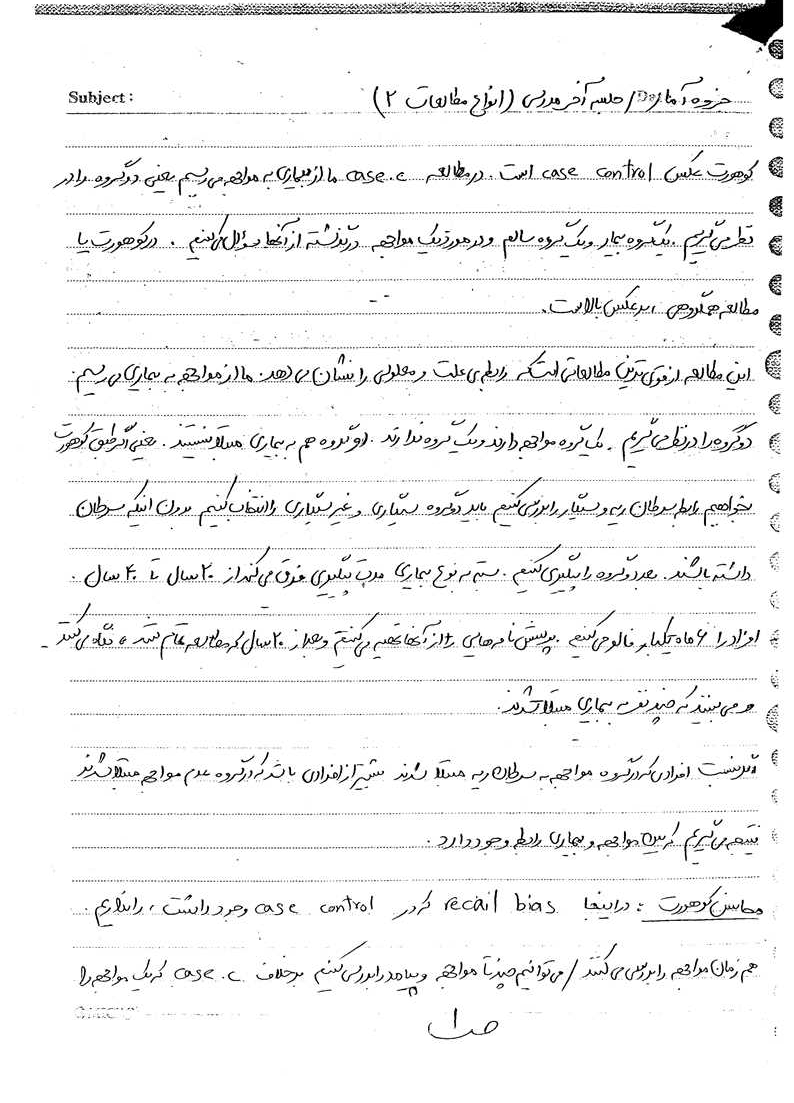 Subject:
جزوه آمار / جلسه آخر مدرس (انواع مطالعات ۲)
کوهورت عکس case control است. در مطالعه case.c ما از بیماری به مواجهه می رسیم یعنی دو گروه را در
نظر می گیریم. یک گروه بیمار و یک گروه سالم و در مورد یک مواجهه در گذشته از آنها سؤال می کنیم. در کوهورت یا
مطالعه همگروهی، برعکس بالاست.
این مطالعه از قوی ترین مطالعاتی است که رابطه ی علت و معلولی را نشان می دهد. ما از مواجهه به بیماری می رسیم.
دو گروه را در نظر می گیریم. یک گروه مواجهه دارند و یک گروه ندارند. دو گروه هم به بیماری مبتلا نیستند. یعنی اگر طبق کوهورت
بخواهیم رابطه سرطان ریه و سیگار را بررسی کنیم باید دو گروه سیگاری و غیر سیگاری را انتخاب کنیم بدون اینکه سرطان
داشته باشند. بعد دو گروه را پیگیری کنیم. بسته به نوع بیماری مدت پیگیری فرق می کند از ۲۰ سال تا ۴۰ سال.
افراد را ۶ ماه یکبار فالو می کنیم. پرسش نامه هایی را از آنها تهیه می کنیم و بعد از ۲۰ سال که مطالعه تمام شد، نگاه می کنند
و می بینند که چند نفر به بیماری مبتلا شدند.
اگر نسبت افرادی که در گروه مواجهه به سرطان ریه مبتلا شدند بیشتر از افرادی باشد که در گروه عدم مواجهه مبتلا شدند
نتیجه می گیریم که بین مواجهه و بیماری رابطه وجود دارد.
محاسن کوهورت: در اینجا recall bias که در case control وجود داشت، را نداریم.
هم زمان مواجهه را بررسی می کنند / می توانیم چند تا مواجهه و پیامد را بررسی کنیم برخلاف case.c که یک مواجهه را
ص۱